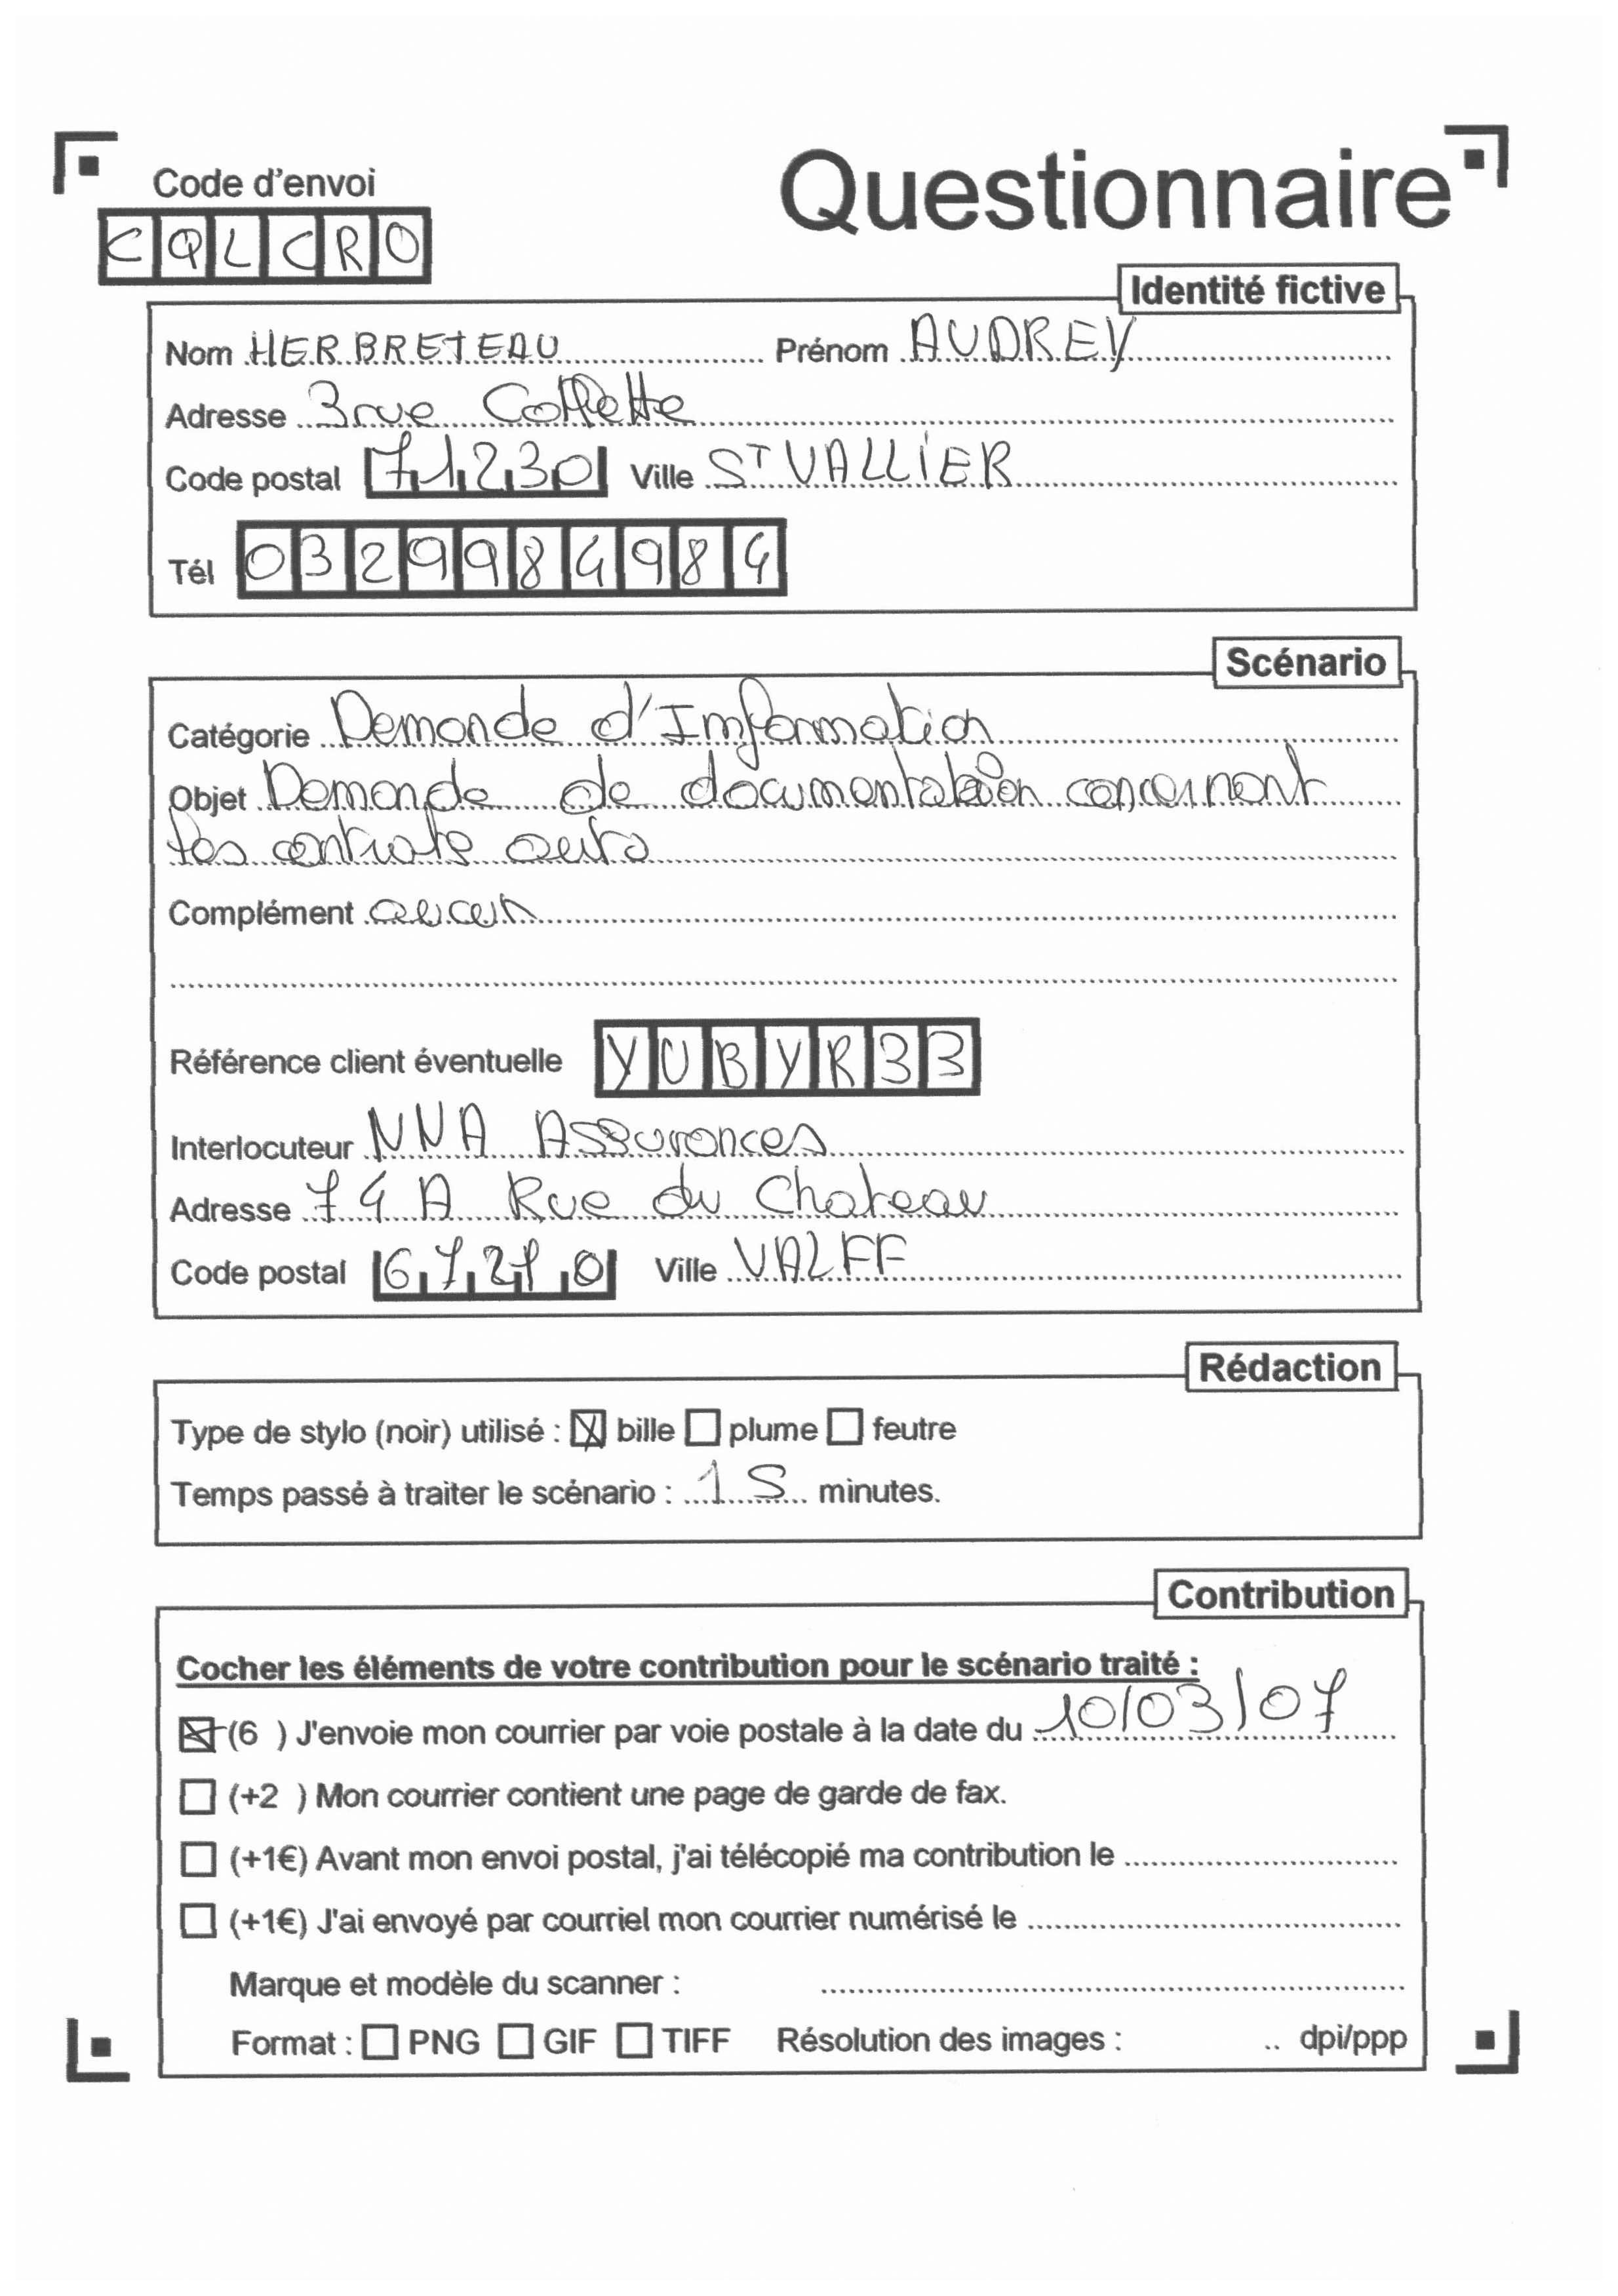 Code d'envoi
Questionnaire
CQLCRO
Identité fictive
Nom HERBRETEAU Prénom AUDREY
Adresse 3 rue Collette
Code postal 71230 Ville ST VALLIER
Tél 0329984984
Scénario
Catégorie Demande d'Information
Objet Demande de documentation concernant
les contrats auto
Complément aucun
Référence client éventuelle YUBYR33
Interlocuteur NNA Assurances
Adresse 74 A Rue du Chateau
Code postal 67210 Ville VALFF
Rédaction
Type de stylo (noir) utilisé : ☒ bille ☐ plume ☐ feutre
Temps passé à traiter le scénario : 15 minutes.
Contribution
Cocher les éléments de votre contribution pour le scénario traité :
☒ (6 ) J'envoie mon courrier par voie postale à la date du 10/03/07
☐ (+2 ) Mon courrier contient une page de garde de fax.
☐ (+1€) Avant mon envoi postal, j'ai télécopié ma contribution le
☐ (+1€) J'ai envoyé par courriel mon courrier numérisé le
Marque et modèle du scanner :
Format : ☐ PNG ☐ GIF ☐ TIFF Résolution des images : .. dpi/ppp